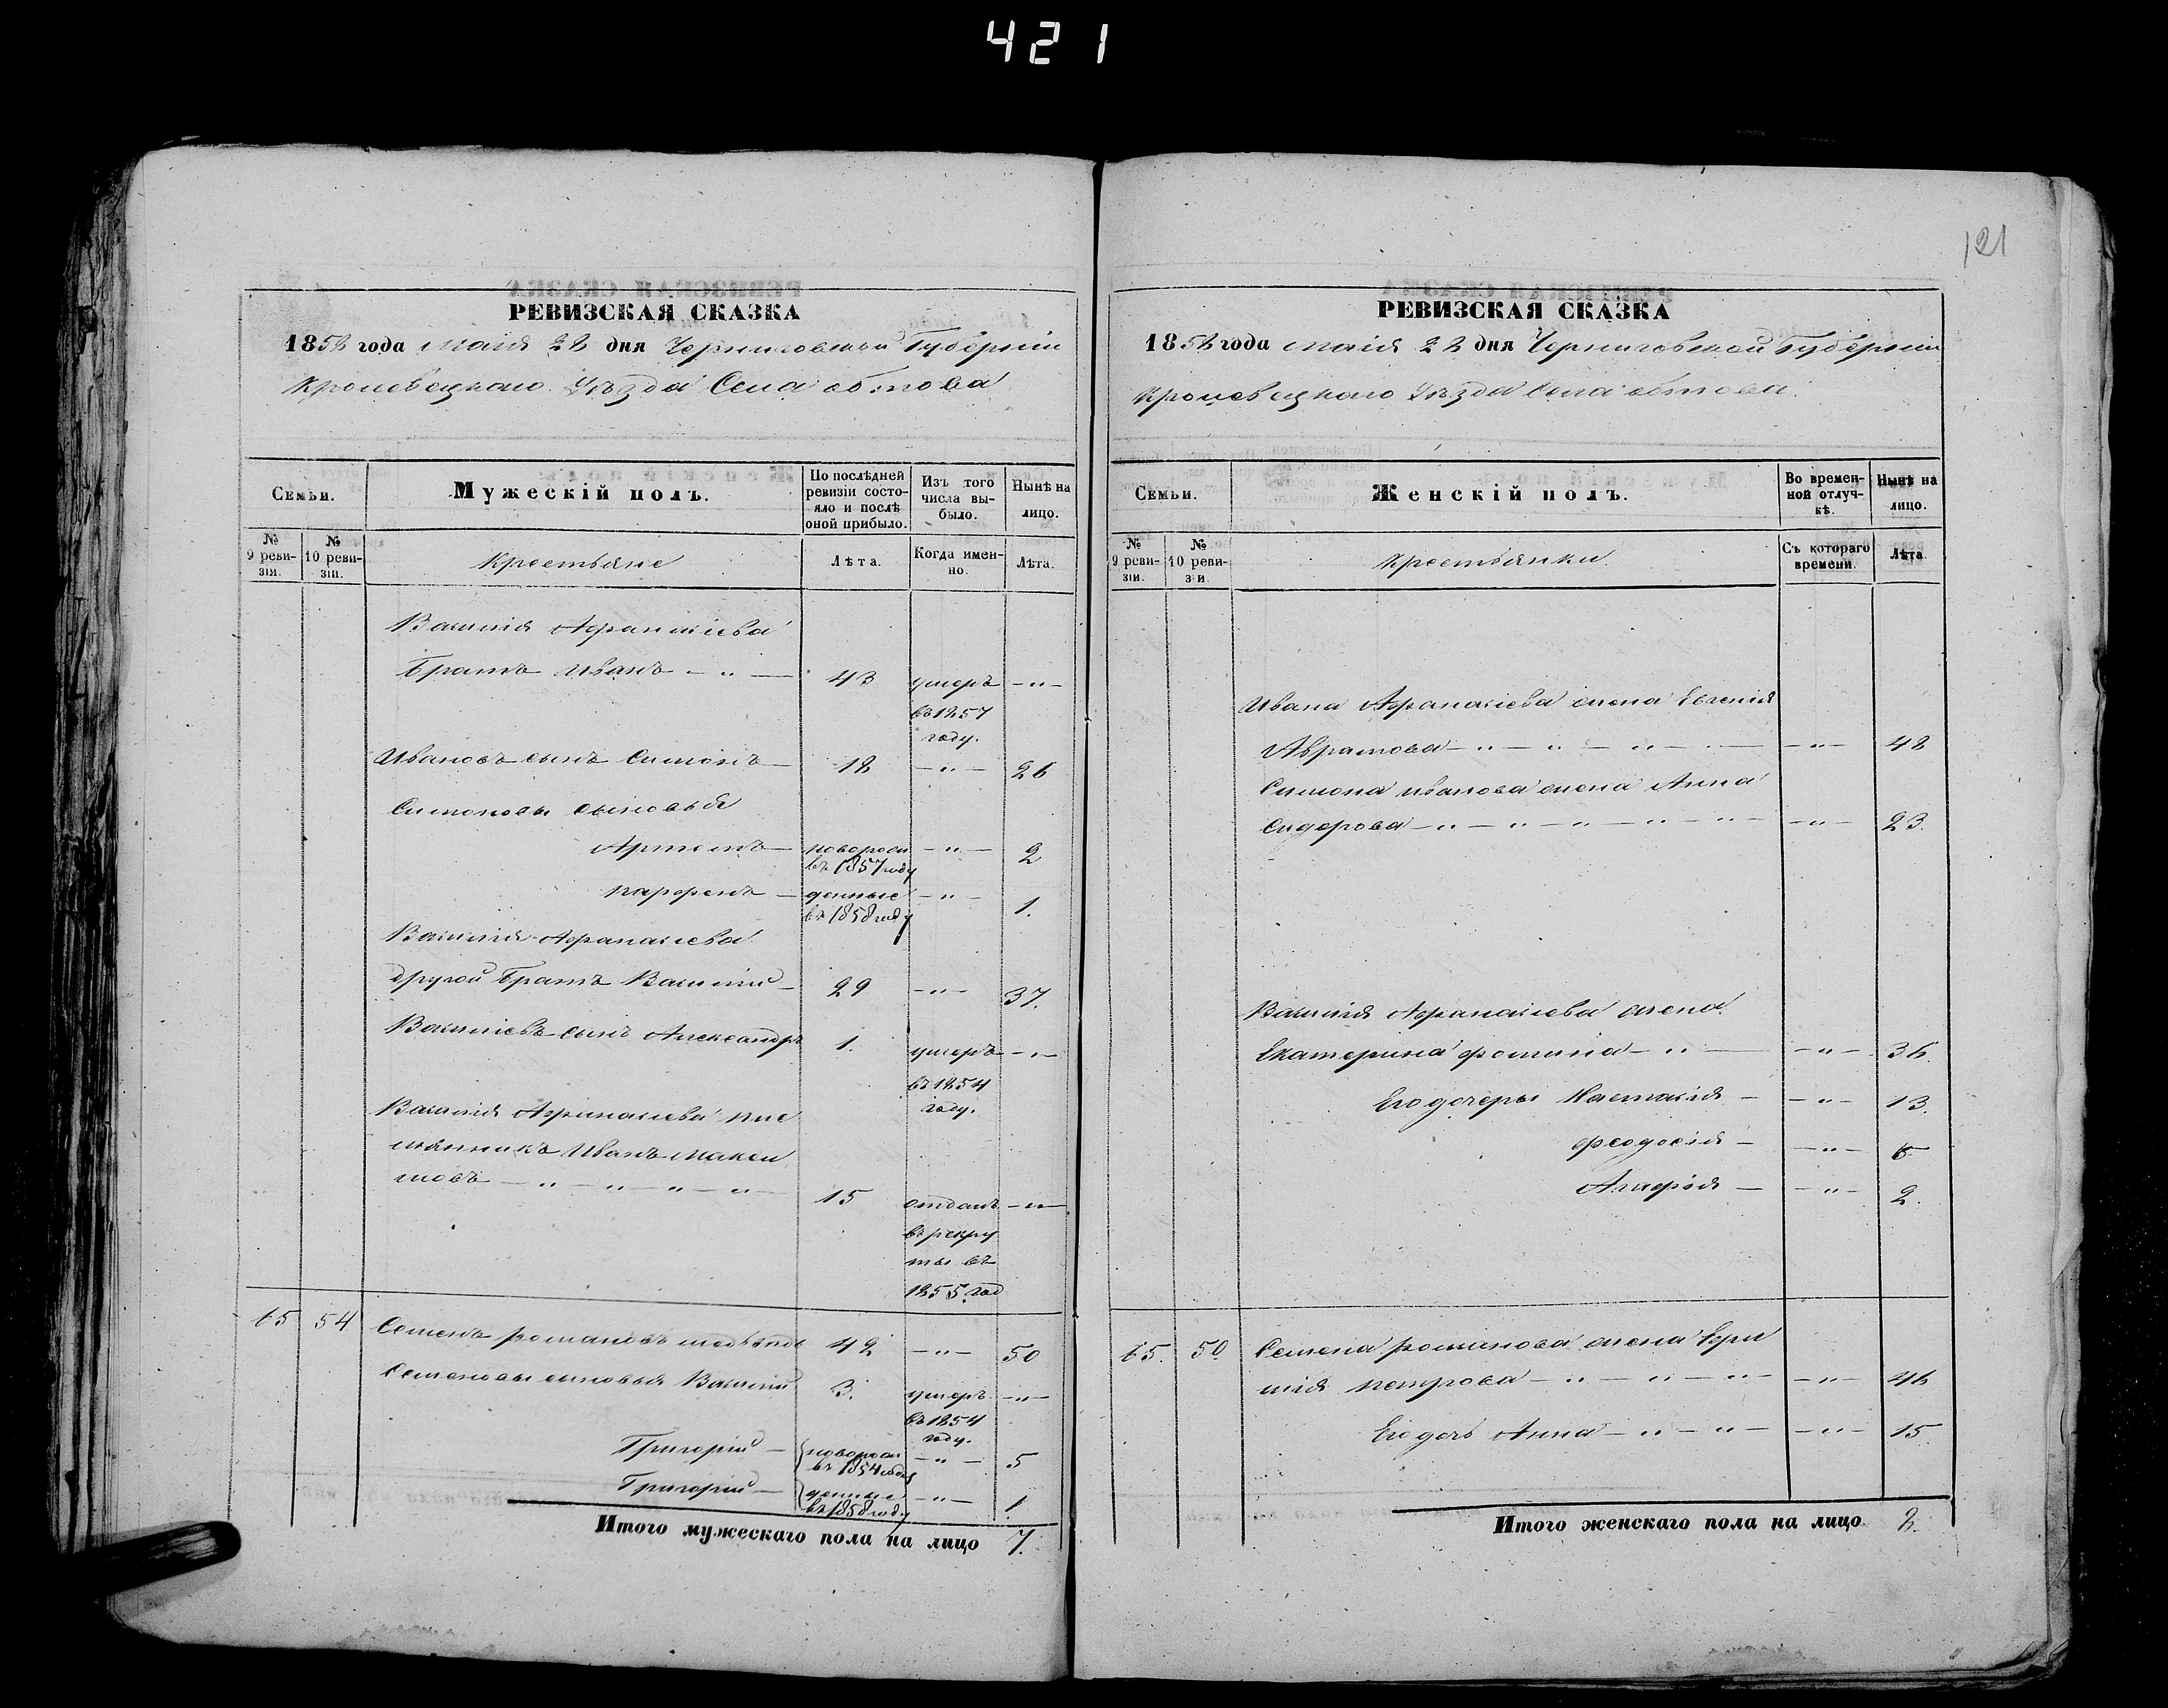 421
121
РЕВИЗСКАЯ СКАЗКА
1858 года маія 22 дня Черниговской Губерніи
Кролевецкаго Уѣзда Села Обтова
Семьи.
Мужескій полъ.
По послѣдней ревизіи состояло и послѣ оной прибыло.
Изъ того числа выбыло.
Нынѣ на лицо.
№ 9 ревизіи.
№ 10 ревизіи.
Крестьяне
Лѣта.
Когда именно.
Лѣта.
Василія Афанасіева
братъ Иванъ — " — 43 умеръ — " —
въ 1857
году.
Ивановъ сынъ Симонъ — 18 — " — 26
Симоновы сыновья
Артемъ — новорож — " — 2
въ 1857 году
Парфенъ — денные — " — 1.
въ 1858 году
Василія Афанасіева
другой братъ Василій — 29 — " — 37.
Василіевъ сынъ Александръ 1. умеръ — " —
въ 1854
году.
Василія Афанасіева пле
мянникъ Иванъ Макси
мовъ — " — " — " — " — 15 отданъ — " —
въ рекру
ты въ
1855 год
65 54 Семенъ Романовъ 42 — " — 50
Семеновы сыновья Василій 3. умеръ — " —
въ 1854
году.
Григорій — новорож — " — 5
въ 1854 году
Григорій — денные — " — 1.
въ 1858 году
Итого мужескаго пола на лицо 7.
РЕВИЗСКАЯ СКАЗКА
1858 года маія 22 дня Черниговской Губерніи
Кролевецкаго Уѣзда Села Обтова.
Семьи.
Женскій полъ.
Во временной отлучкѣ.
Нынѣ на лицо.
№ 9 ревизіи.
№ 10 ревизіи.
Крестьянки.
Съ котораго времени.
Лѣта.
Ивана Афанасіева жена Евгенія
Аврамова — " — " — " — — " — 48
Симона Иванова жена Анна
Сидорова — " — " — " — " — " — — " — 23.
Василія Афанасіева жена
Екатерина Фомина — " — — " — 36.
Его дочери Настасія — — " — 13.
Феодосія — — " — 6
Агафія — — " — 2.
65. 50. Семена Романова жена Ефи
мія Петрова — " — " — " — — " — 46
Его дочь Анна — " — " — — " — 15.
Итого женскаго пола на лицо 8.